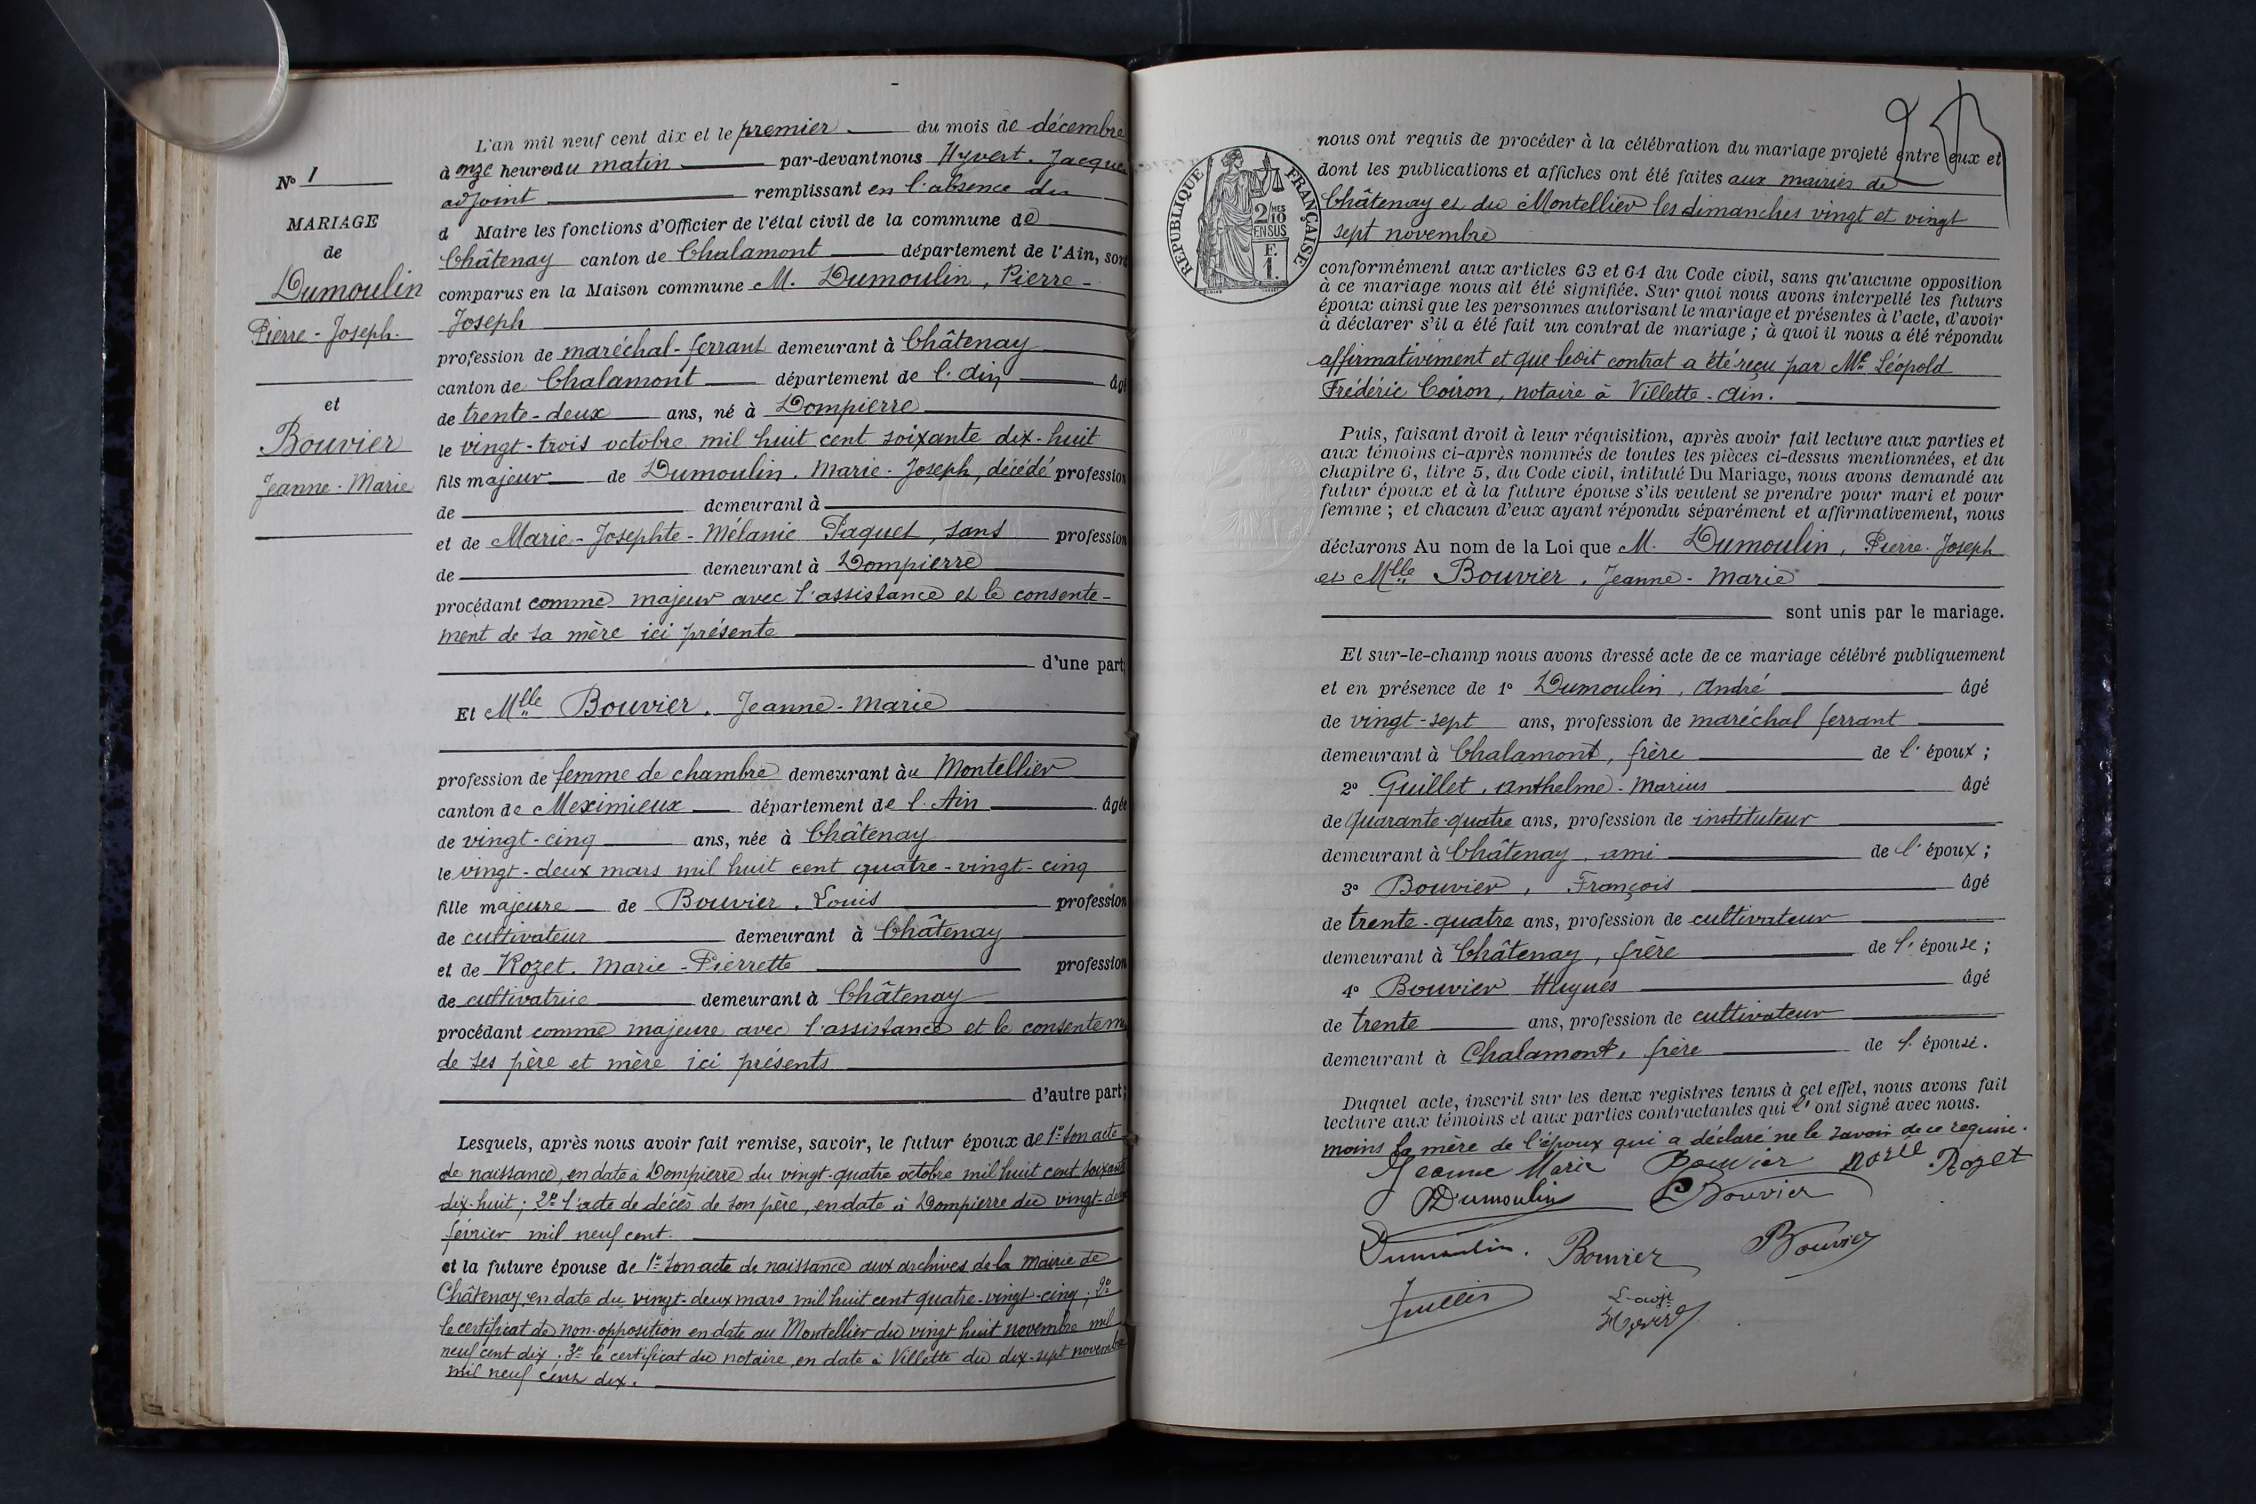 N° 1
MARIAGE
de
Dumoulin
Pierre-Joseph.
et
Bouvier
Jeanne-Marie
L'an mil neuf cent dix et le premier du mois de décembre
à onze heures du matin par-devant nous Hyvert. Jacques
adjoint remplissant en l'absence du
d Maire les fonctions d'Officier de l'état civil de la commune de
Châtenay canton de Chalamont département de l'Ain, sont
comparus en la Maison commune M. Dumoulin, Pierre-
Joseph
profession de maréchal-ferrant demeurant à Châtenay
canton de Chalamont département de l'Ain âgé
de trente-deux ans, né à Dompierre
le vingt-trois octobre mil huit cent soixante dix-huit
fils majeur de Dumoulin. Marie-Joseph, décédé profession
de demeurant à
et de Marie-Josephte-Mélanie Paquet, sans profession
de demeurant à Dompierre
procédant comme majeur avec l'assistance et le consente-
ment de sa mère ici présente
d'une part;
Et Mlle Bouvier. Jeanne-Marie
profession de femme de chambre demeurant àu Montellier
canton de Meximieux département de l'Ain âgée
de vingt-cinq ans, née à Châtenay
le vingt-deux mars mil huit cent quatre-vingt-cinq
fille majeure de Bouvier. Louis profession
de cultivateur demeurant à Châtenay
et de Rozet. Marie-Pierrette profession
de cultivatrice demeurant à Châtenay
procédant comme majeure avec l'assistance et le consentem
de ses père et mère ici présents
d'autre part;
Lesquels, après nous avoir fait remise, savoir, le futur époux de 1° son acte
de naissance, en date à Dompierre du vingt-quatre octobre mil huit cent soixante
dix-huit; 2° l'acte de décès de son père, en date à Dompierre du vingt-deux
février mil neuf cent.
et la future épouse de 1° son acte de naissance aux archives de la mairie de
Châtenay, en date du vingt-deux mars mil huit cent quatre-vingt-cinq; 2°
le certificat de non-opposition en date au Montellier du vingt huit novembre mil
neuf cent dix; 3° le certificat du notaire, en date à Villette du dix-sept novembre
mil neuf cent dix.
RÉPUBLIQUE FRANÇAISE
2/MES
10
EN SUS
F.
1.
nous ont requis de procéder à la célébration du mariage projeté entre eux et
dont les publications et affiches ont été faites aux mairies de
Châtenay et du Montellier les dimanches vingt et vingt
sept novembre
conformément aux articles 63 et 64 du Code civil, sans qu'aucune opposition
à ce mariage nous ait été signifiée. Sur quoi nous avons interpellé les futurs
époux ainsi que les personnes autorisant le mariage et présentes à l'acte, d'avoir
à déclarer s'il a été fait un contrat de mariage; à quoi il nous a été répondu
affirmativement et que ledit contrat a été reçu par Me Léopold
Frédéric Coiron, notaire à Villette-Ain.
Puis, faisant droit à leur réquisition, après avoir fait lecture aux parties et
aux témoins ci-après nommés de toutes les pièces ci-dessus mentionnées, et du
chapitre 6, titre 5, du Code civil, intitulé Du Mariage, nous avons demandé au
futur époux et à la future épouse s'ils veulent se prendre pour mari et pour
femme; et chacun d'eux ayant répondu séparément et affirmativement, nous
déclarons Au nom de la Loi que M. Dumoulin, Pierre-Joseph
et Mlle Bouvier. Jeanne-Marie
sont unis par le mariage.
Et sur-le-champ nous avons dressé acte de ce mariage célébré publiquement
et en présence de 1° Dumoulin, André âgé
de vingt-sept ans, profession de maréchal ferrant
demeurant à Chalamont, frère de l'époux;
2° Guillet, Anthelme-Marius âgé
de quarante-quatre ans, profession de instituteur
demeurant à Châtenay, ami de l'époux;
3° Bouvier, François âgé
de trente-quatre ans, profession de cultivateur
demeurant à Châtenay, frère de l'épouse;
4° Bouvier Hugues âgé
de trente ans, profession de cultivateur
demeurant à Chalamont, frère de l'épouse.
Duquel acte, inscrit sur les deux registres tenus à cet effet, nous avons fait
lecture aux témoins et aux parties contractantes qui l'ont signé avec nous.
moins la mère de l'époux qui a déclaré ne le savoir de ce requise.
Jeanne Marie Bouvier Marie Rozet
Dumoulin Bouvier
Dumoulin. Bouvier Bouvier
Guillet L'adjt
Hyvert